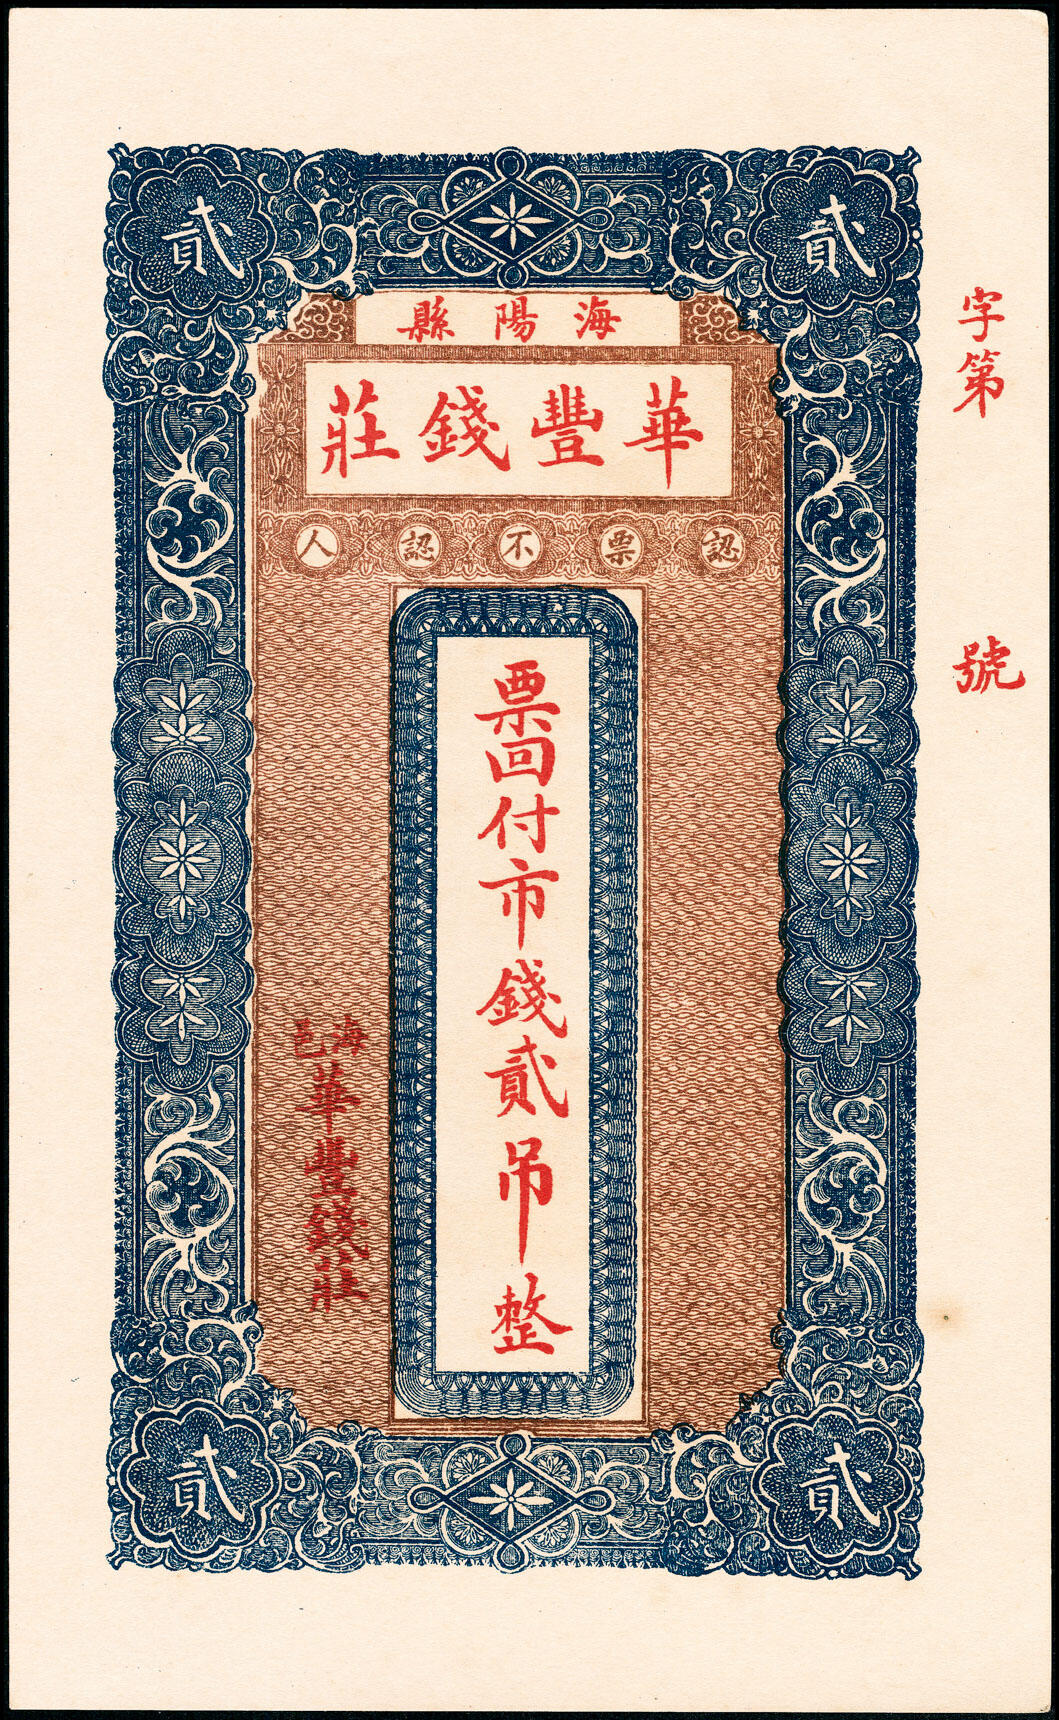 貳 貳
海陽縣
華豐錢莊
認票不認人
字第 號
票囬付市錢貳吊整
海邑
華豐錢莊
貳 貳